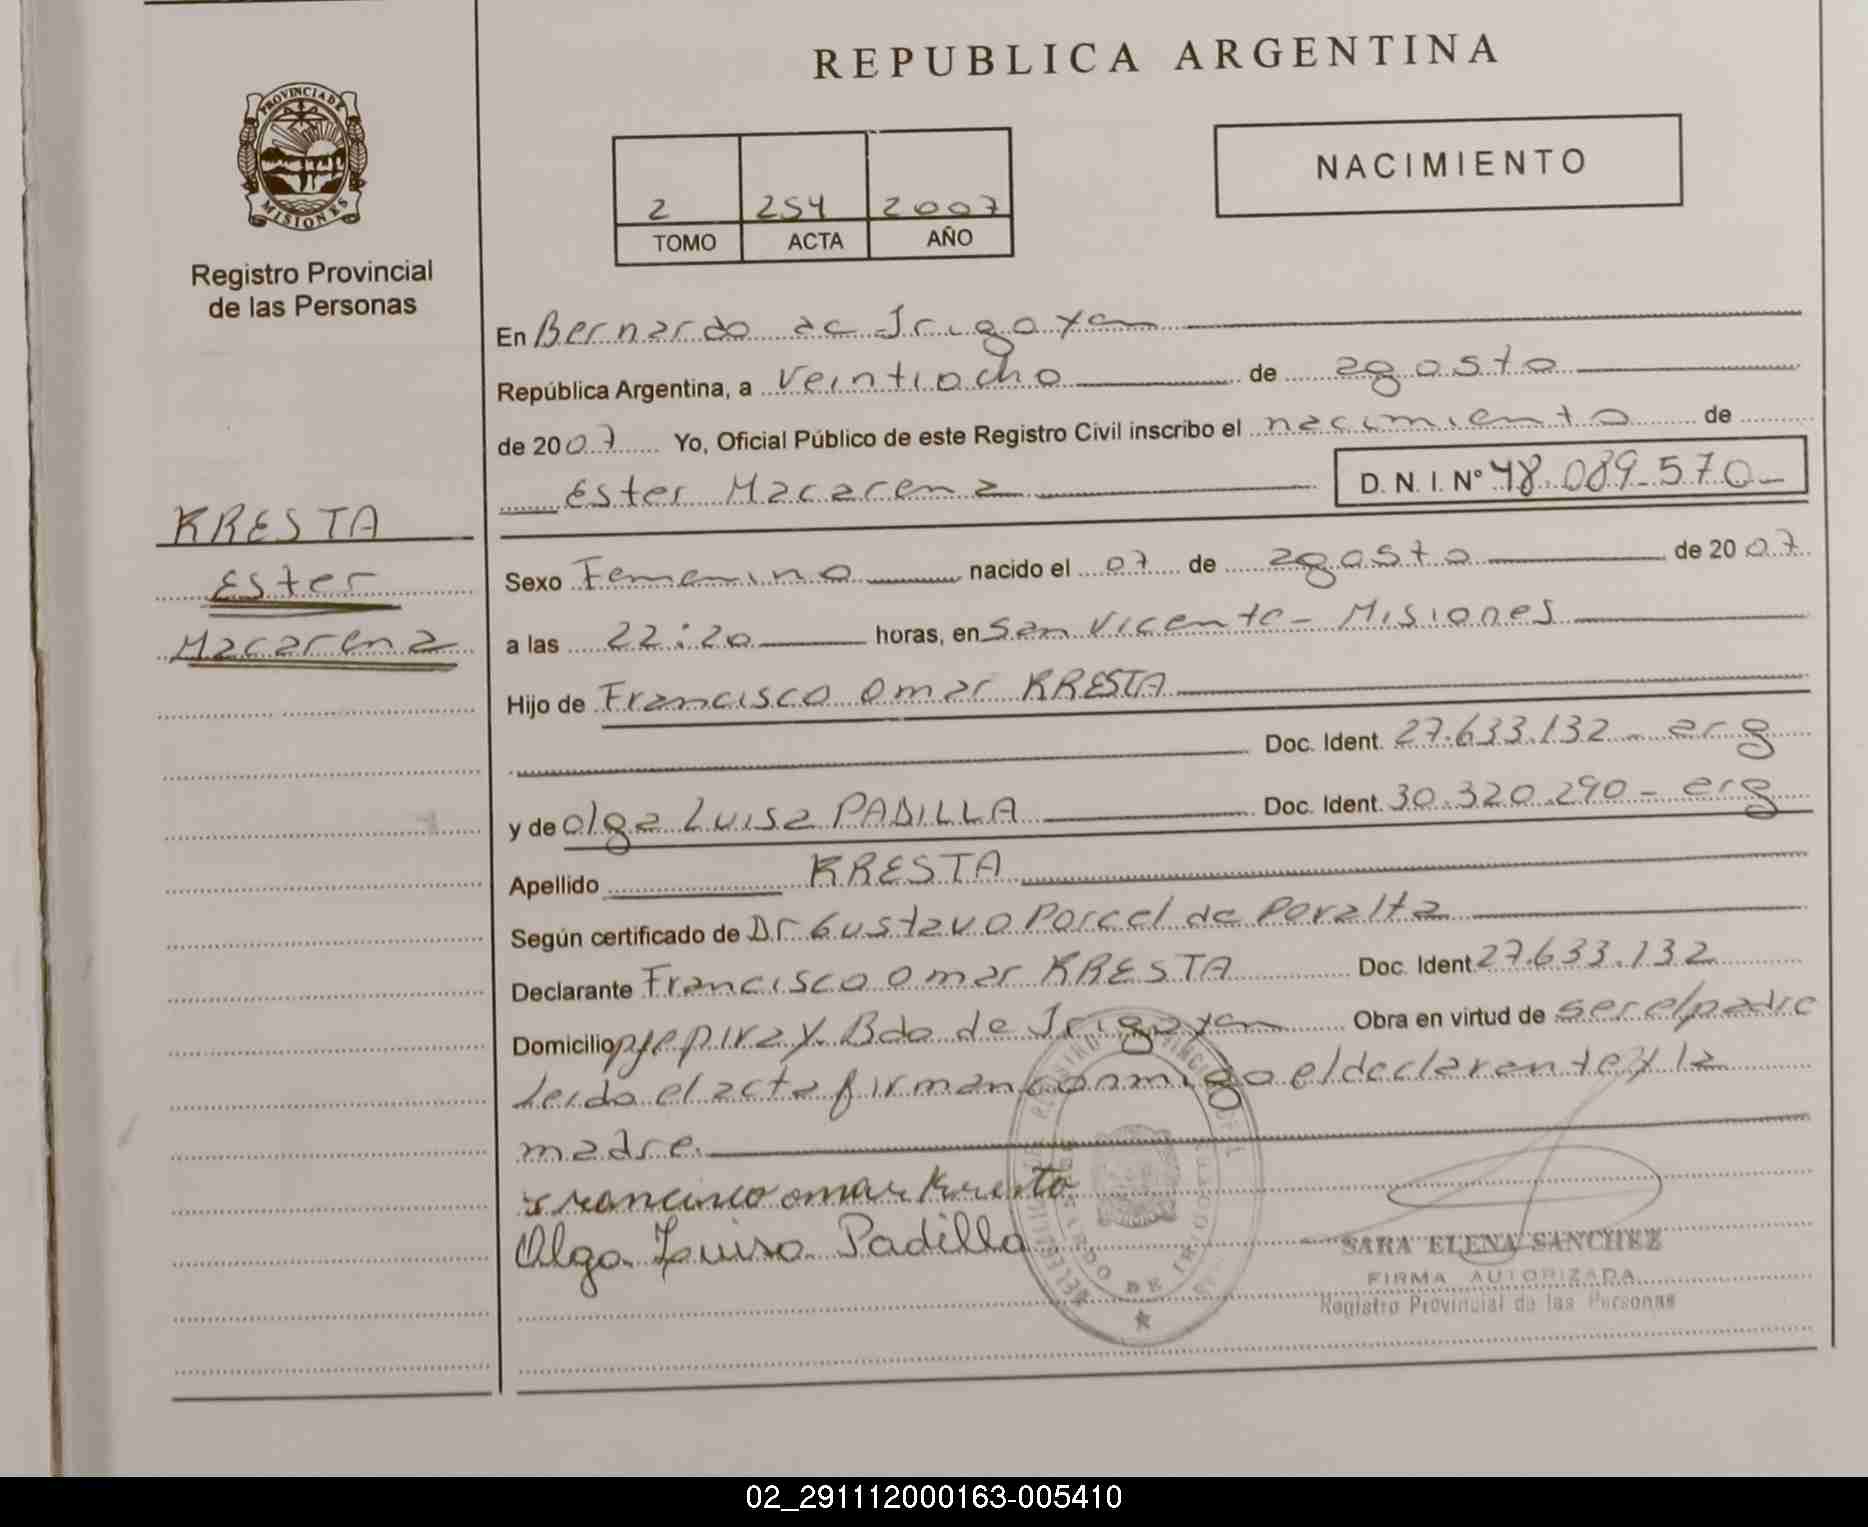 REPUBLICA ARGENTINA
PROVINCIA DE
MISIONES
Registro Provincial
de las Personas
NACIMIENTO
2 254 2007
TOMO ACTA AÑO
En Bernardo de Irigoyen
República Argentina, a Veintiocho de agosto
de 2007 Yo, Oficial Público de este Registro Civil inscribo el nacimiento de
Ester Macarena D. N. I. Nº 48.089.570-
KRESTA
Ester
Macarena
Sexo Femenino nacido el 07 de agosto de 2007
a las 22:20 horas, en San Vicente - Misiones
Hijo de Francisco Omar KRESTA
Doc. Ident. 27.633.132 - arg
y de Olga Luisa PADILLA Doc. Ident. 30.320.290 - arg
Apellido KRESTA
Según certificado de Dr Gustavo Porcel de Peralta
Declarante Francisco Omar KRESTA Doc. Ident. 27.633.132
Domicilio Bdo de Irigoyen Obra en virtud de ser el padre
Leida el acta firman conmigo el declarante y la
madre.
Francisco omar Kresta
Olga Luisa Padilla
SARA ELENA SANCHEZ
FIRMA AUTORIZADA
Registro Provincial de las Personas
02_291112000163-005410